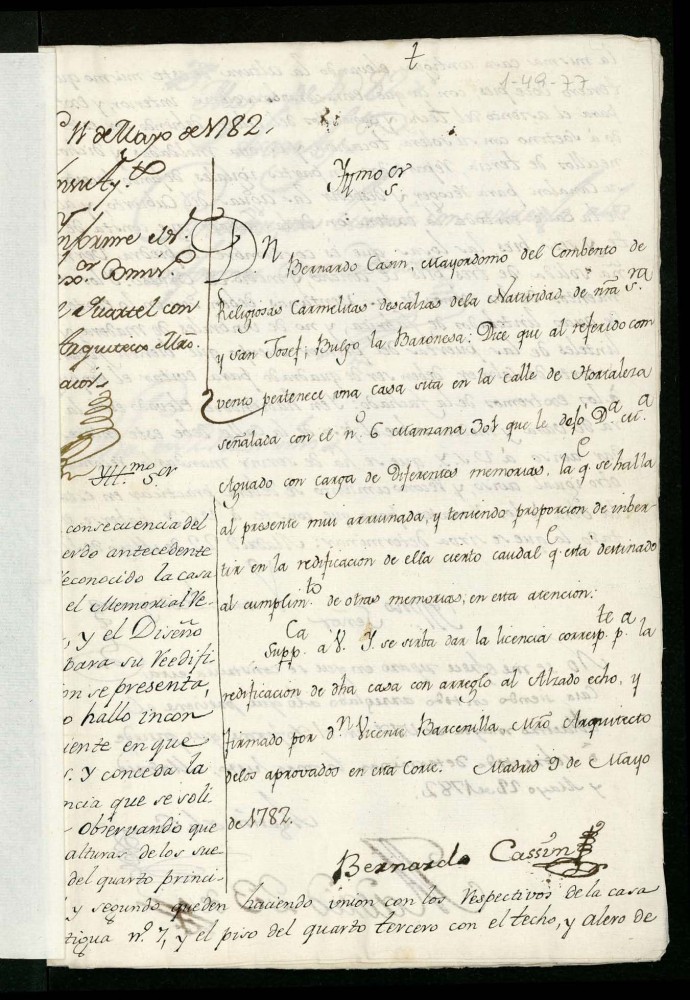 t
1-49-77
11 de Mayo de 1782.
Informe el S.r
Quartel con
Arquitecto Mro.
Yll.mo S.r
consecuencia del
antecedente
reconocido la casa
el Memorial
, y el Diseño
para su reedifi
se presenta,
hallo incon
iente en que
S. Y conceda la
ncia que se soli
Observando que
alturas de los sue
del quarto princi
y segundo queden haciendo union con los respectivos de la casa
tigua n.º 7, y el piso del quarto tercero con el techo, y alero de
Yll.mo S.r
D.n Bernardo Casin, Mayordomo del Combento de
Religiosas Carmelitas descalzas de la Natividad de nrã S.ra
y san Josef, Bulgo la Baronesa: Dice que al referido con
vento pertenece una casa sita en la calle de Hortaleza
señalada con el n.º 6 Manzana 301 que le dejó D.a
con carga de Diferentes memorias, la q.e se halla
al presente mui arruinada, y teniendo proporcion de inber-
tir en la redificacion de ella cierto caudal q.e está destinado
al cumplim.to de otras memorias, en esta atencion:
Supp.ca á V. Y. se sirba dar la licencia corresp.te p.a la
redificacion de dha casa con arreglo al Alzado echo, y
firmado por d.n Vicente Barcenilla, Mrõ Arquitecto
delos aprovados en esta Corte. Madrid 9 de Mayo
de 1782.
Bernardo Cassin